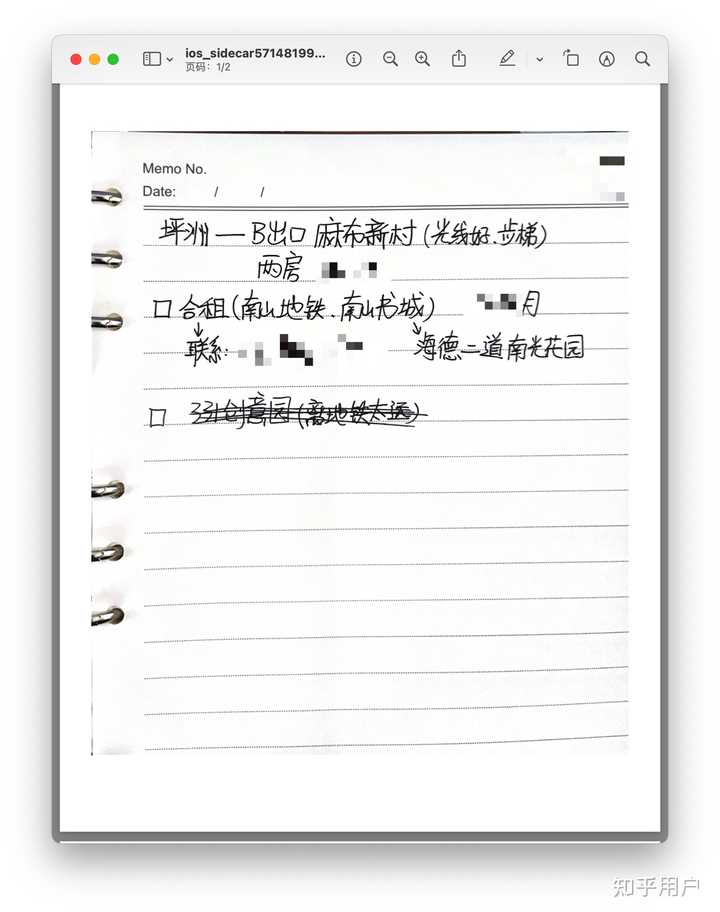 ios_sidecar57148199...
页码：1/2
Memo No.
Date: / /
坪洲 — B出口 麻布新村 (光线好、步梯)
两房
□ 合租 (南山地铁、南山书城) 月
↓ ↓
联系: 海德二道南光花园
□ 创意园 (离地铁太远)
知乎用户